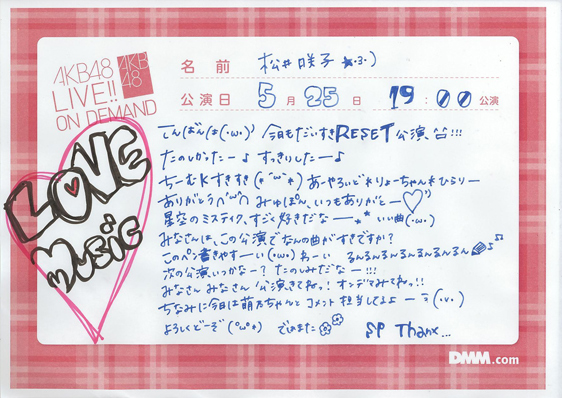 AKB48
LIVE!!
ON DEMAND
AKB
48
名前 松井咲子 ★･3･)
公演日 5月25日 19:00公演
LOVE
music
こんばんは(･ω･)' 今日もだいすきRESET公演、!!!
たのしかったーよ すっきりしたーよ
ちーむKすきすき あーやろいどれりょーちゃん*ひらりー
ありがとう(^ω^) みゅぽん、いつもありがとー♡
星空のミステイク、すごく好きだなー** いい曲(･ω･)
みなさんは、この公演でなんの曲がすきですか?
このペン書きやすーい(･ω･)わーい るんるんるんるんるんるん♪
次の公演いつかなー? たのしみだなー!!!
みなさん みなさん 公演きてねっ! オンデマみてねっ!!
ちなみに今日は萌乃ちゃんとコメント担当してるよーう(･v･)
よろしくどーぞ(°ω°*) でしまた SP Thanx...
DMM.com